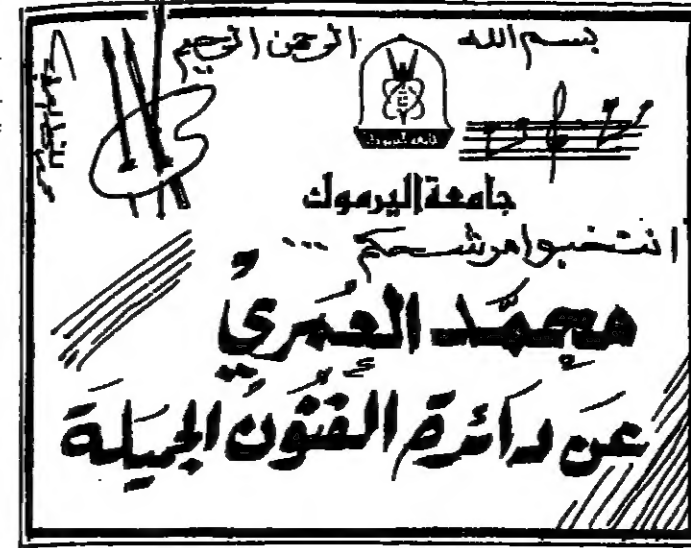 بسم الله الرحمن الرحيم
جامعة اليرموك
انتخبوا مرشحكم ...
محمد العمري
عن دائرة الفنون الجميلة